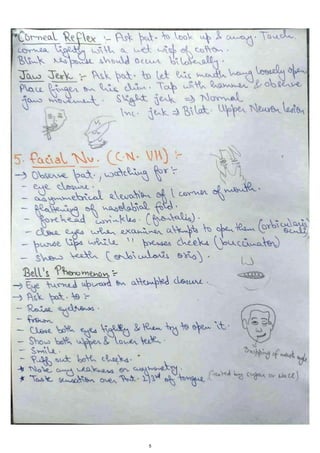 * Corneal Reflex :- Ask pat. to look up & away. Touch
cornea lightly with a wet wisp of cotton.
Blink response should occur bilaterally.
Jaw Jerk :- Ask pat. to let his mouth hang loosely open
Place finger on his chin. Tap with hammer & observe
jaw movement. Slight jerk => Normal
Inc. jerk => Bilat. Upper Neuron lesion
5. Facial Nv. (C.N. VII) :-
→ Observe pat., watching for :-
- eye closure.
- asymmetrical elevation of 1 corner of mouth.
- flattening of nasolabial fold.
- forehead wrinkles. (frontalis).
- close eyes when examiner attempts to open them (orbicularis oculi)
- purse lips while " presses cheeks (buccinator)
- Show teeth (orbicularis oris).
Bell's Phenomenon :-
→ Eye turned upward on attempted closure.
→ Ask pat. to :-
- Raise eyebrows.
- Frown
- Close both eyes tightly & then try to open it.
- Show both upper & lower teeth.
- Smile.
- Puff out both cheeks.
* Note any weakness or asymmetry.
* Taste sensation over Ant. 2/3rd of tongue (tested by sugar or NaCl)
Dropping of mouth angle
5